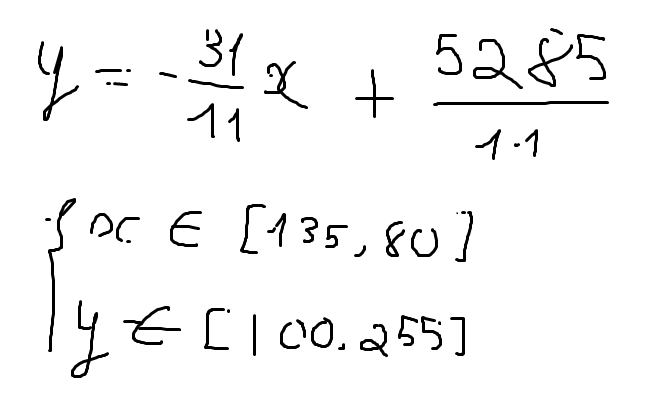 y = -31/11 x + 5285/11
{ x ∈ [135, 80]
y ∈ [100. 255]